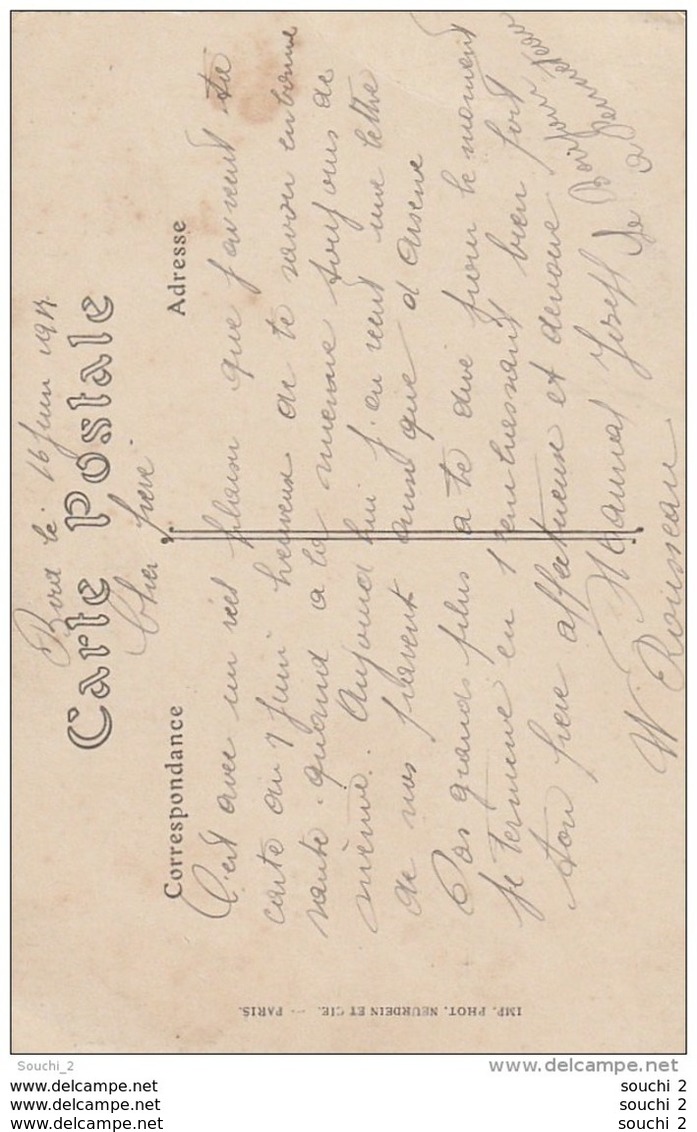 le 16 Juin 191
Carte Postale
Cher frère
Correspondance
Adresse
C'est avec un réel plaisir que j'ai reçut ta
carte du 7 Juin heureux de te savoir en bonne
santé. quand a la mienne toujours de
même. Aujourd hui j'ai reçut une lettre
de nos parent ainsi que d Arsene
Pas grand plus a te dire pour le moment
je termine en t'embrassant bien fort
ton frère affectueux et dévoué
Joseph
W. Rousseau
IMP. PHOT. NEURDEIN ET CIE. — PARIS.
Souchi_2
www.delcampe.net
www.delcampe.net souchi 2
www.delcampe.net souchi 2
www.delcampe.net souchi 2